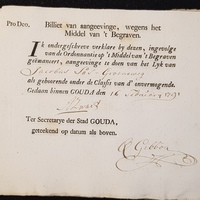 Pro Deo. Billiet van aangeevinge, wegens het
Middel van 't Begraven.
Ik ondergeschreve verklare by dezen, ingevolge
van de Ordonnantie op 't Middel van 't Begraven
geëmaneert, aangeevinge te doen van het Lyk van
Jacobus
als gehoorende onder de Classis van d' onvermogende.
Gedaan binnen GOUDA den 16
Ter Secretarye der Stad GOUDA,
geteekend op datum als boven.